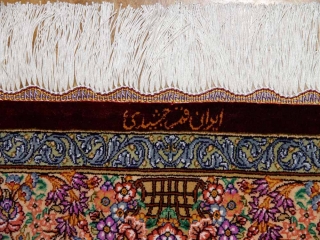 ایران قم جمشیدی